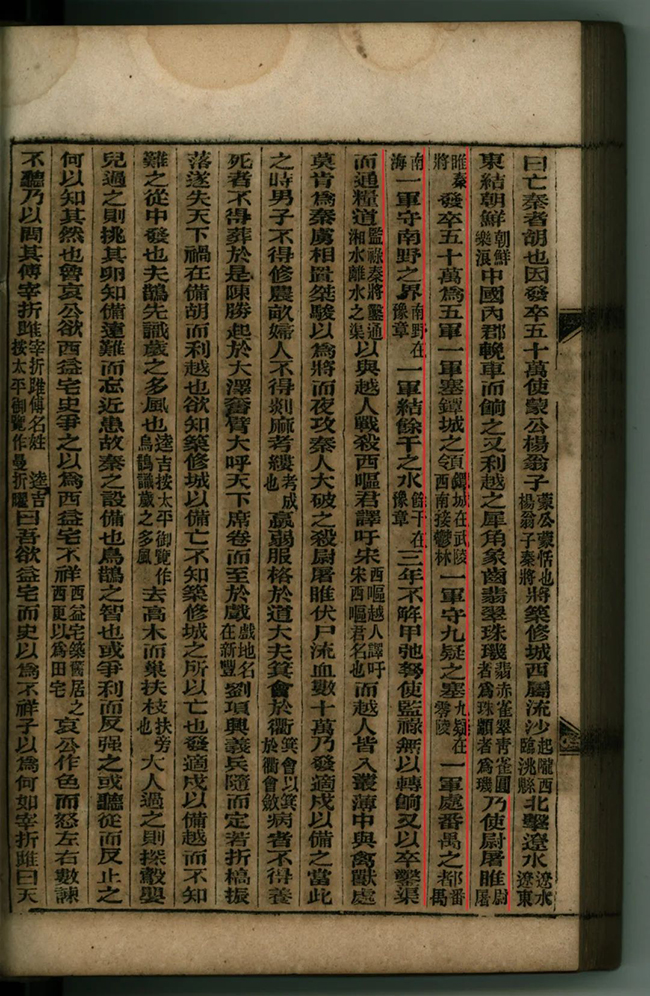 曰亡秦者胡也因發卒五十萬使蒙公楊翁子蒙公蒙恬也楊翁子秦將將築修城西屬流沙起隴西臨洮縣北擊遼水遼水遼東
東結朝鮮朝鮮樂浪中國內郡輓車而餉之又利越之犀角象齒翡翠珠璣翡赤雀翠青雀圓者爲珠顆者爲璣乃使尉屠睢尉屠
睢秦將發卒五十萬爲五軍一軍塞鐔城之領鐔城在武陵西南接鬱林一軍守九疑之塞九疑在零陵一軍處番禺之都番禺
南海一軍守南野之界南野在豫章一軍結餘干之水餘干在豫章三年不解甲弛弩使監祿無以轉餉又以卒鑿渠
而通糧道監祿秦將鑿通湘水離水之渠以與越人戰殺西嘔君譯吁宋西嘔越人譯吁宋西嘔君名也而越人皆入叢薄中與禽獸處
莫肯爲秦虜相置桀駿以爲將而夜攻秦人大破之殺尉屠睢伏尸流血數十萬乃發適戍以備之當此
之時男子不得修農畝婦人不得剡麻考縷考成也羸弱服格於道大夫箕會於衢箕會以箕於衢會斂病者不得養
死者不得葬於是陳勝起於大澤奮臂大呼天下席卷而至於戲戲地名在新豐劉項興義兵隨而定若折槁振
落遂失天下禍在備胡而利越也欲知築修城以備亡不知築修城之所以亡也發適戍以備越而不知
難之從中發也夫鵲先識歲之多風也逵吉按太平御覽作烏鵲識歲之多風去高木而巢扶枝扶旁也大人過之則探鷇嬰
兒過之則挑其卵知備遠難而忘近患故秦之設備也烏鵲之智也或爭利而反强之或聽從而反止之
何以知其然也魯哀公欲西益宅史爭之以爲西益宅不祥西益宅築舊居之西更以爲田宅哀公作色而怒左右數諫
不聽乃以問其傅宰折睢宰折睢傅名姓逵吉按太平御覽作曼折矅曰吾欲益宅而史以爲不祥子以爲何如宰折睢曰天